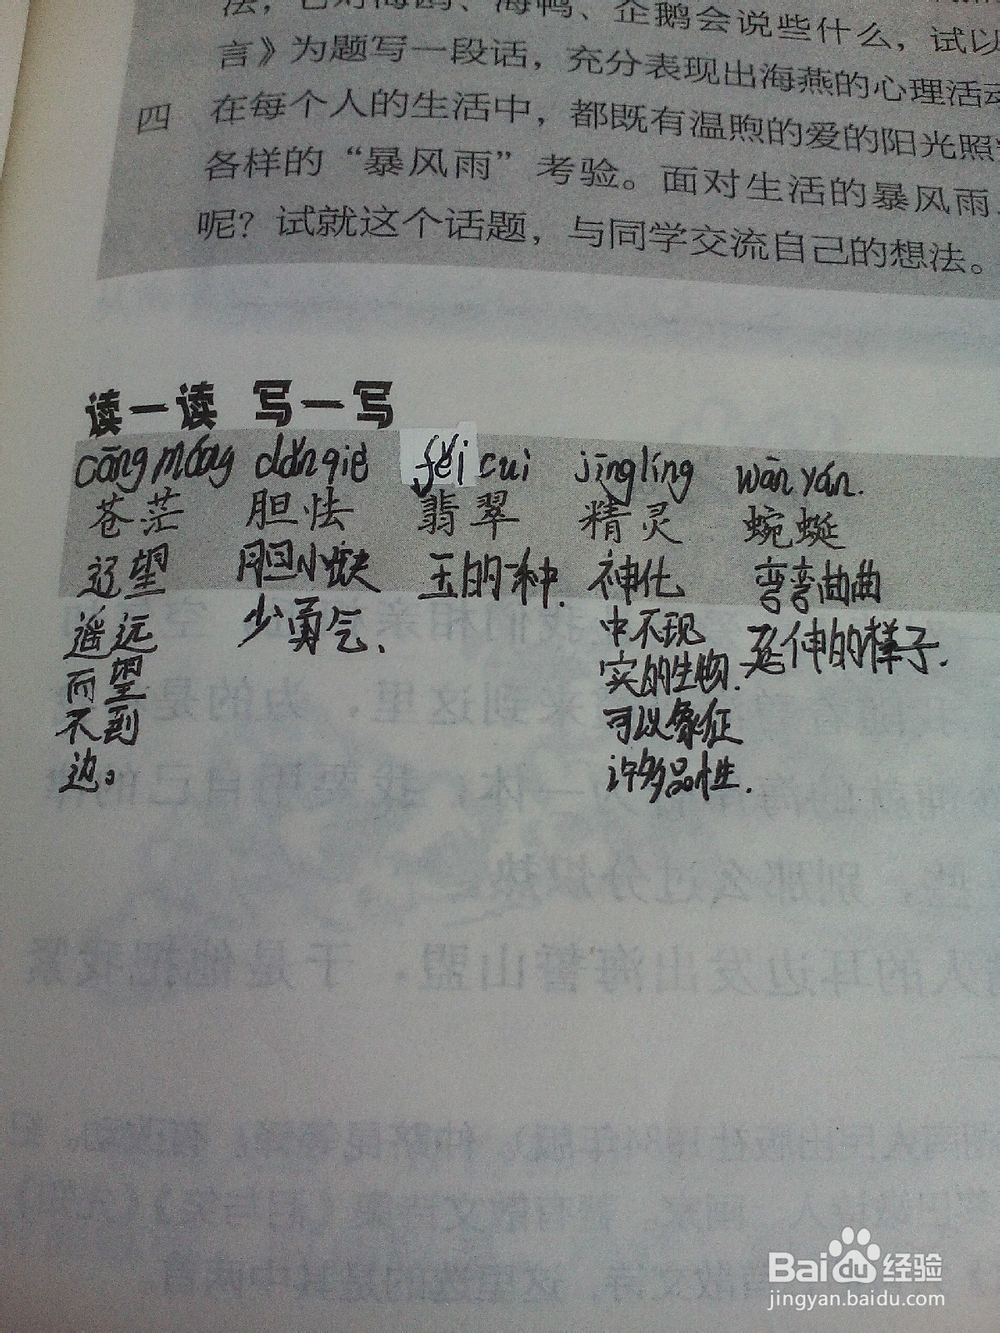 法，它对海鸥、海鸭、企鹅会说些什么，试以
言》为题写一段话，充分表现出海燕的心理活动
四 在每个人的生活中，都既有温煦的爱的阳光照
各样的“暴风雨”考验。面对生活的暴风雨，
呢？试就这个话题，与同学交流自己的想法。
读一读 写一写
cāng máng dǎn qiè fěi cuì jīng líng wān yán.
苍茫 胆怯 翡翠 精灵 蜿蜒
辽望 胆小缺 玉的一种. 神化 弯弯曲曲
遥远 少勇气. 中不现 延伸的样子.
而望 实的生物.
不到 可以象征
边。 许多品性.
Baidu 经验
jingyan.baidu.com